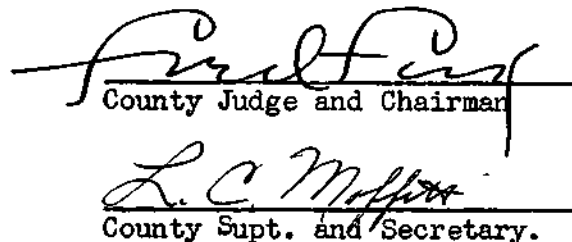 County Judge and Chairman
L. C. Moffitt
County Supt. and Secretary.